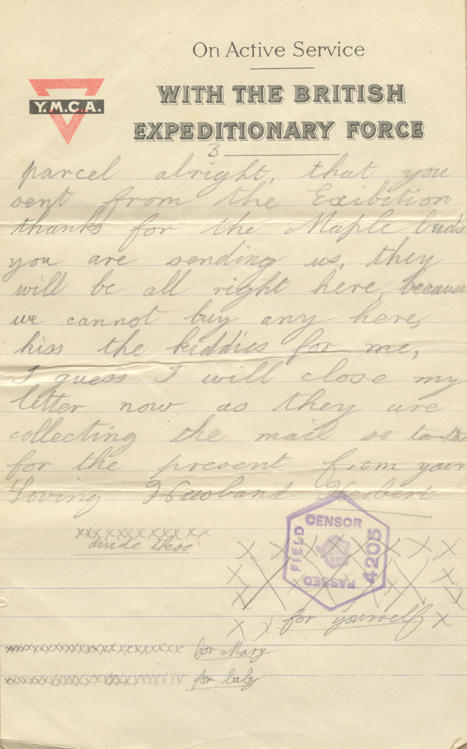 On Active Service
Y.M.C.A.
WITH THE BRITISH
EXPEDITIONARY FORCE
3
parcel alright, that you
sent from the Exibition
thanks for the Maple buds
you are sending us, they
will be all right here, because
we cannot buy any here,
kiss the kiddies for me,
I guess I will close my
letter now as they are
collecting the mail so ta-ta
for the present from your
Loving Husband Herbert
xxx xxxxxxxxx
divide these
FIELD CENSOR
PASSED
4205
for yourself
xxxxxxxxxxxxxxxxxxxx for Mary
xxxxxxxxxxxxxxxxxxxx for baby